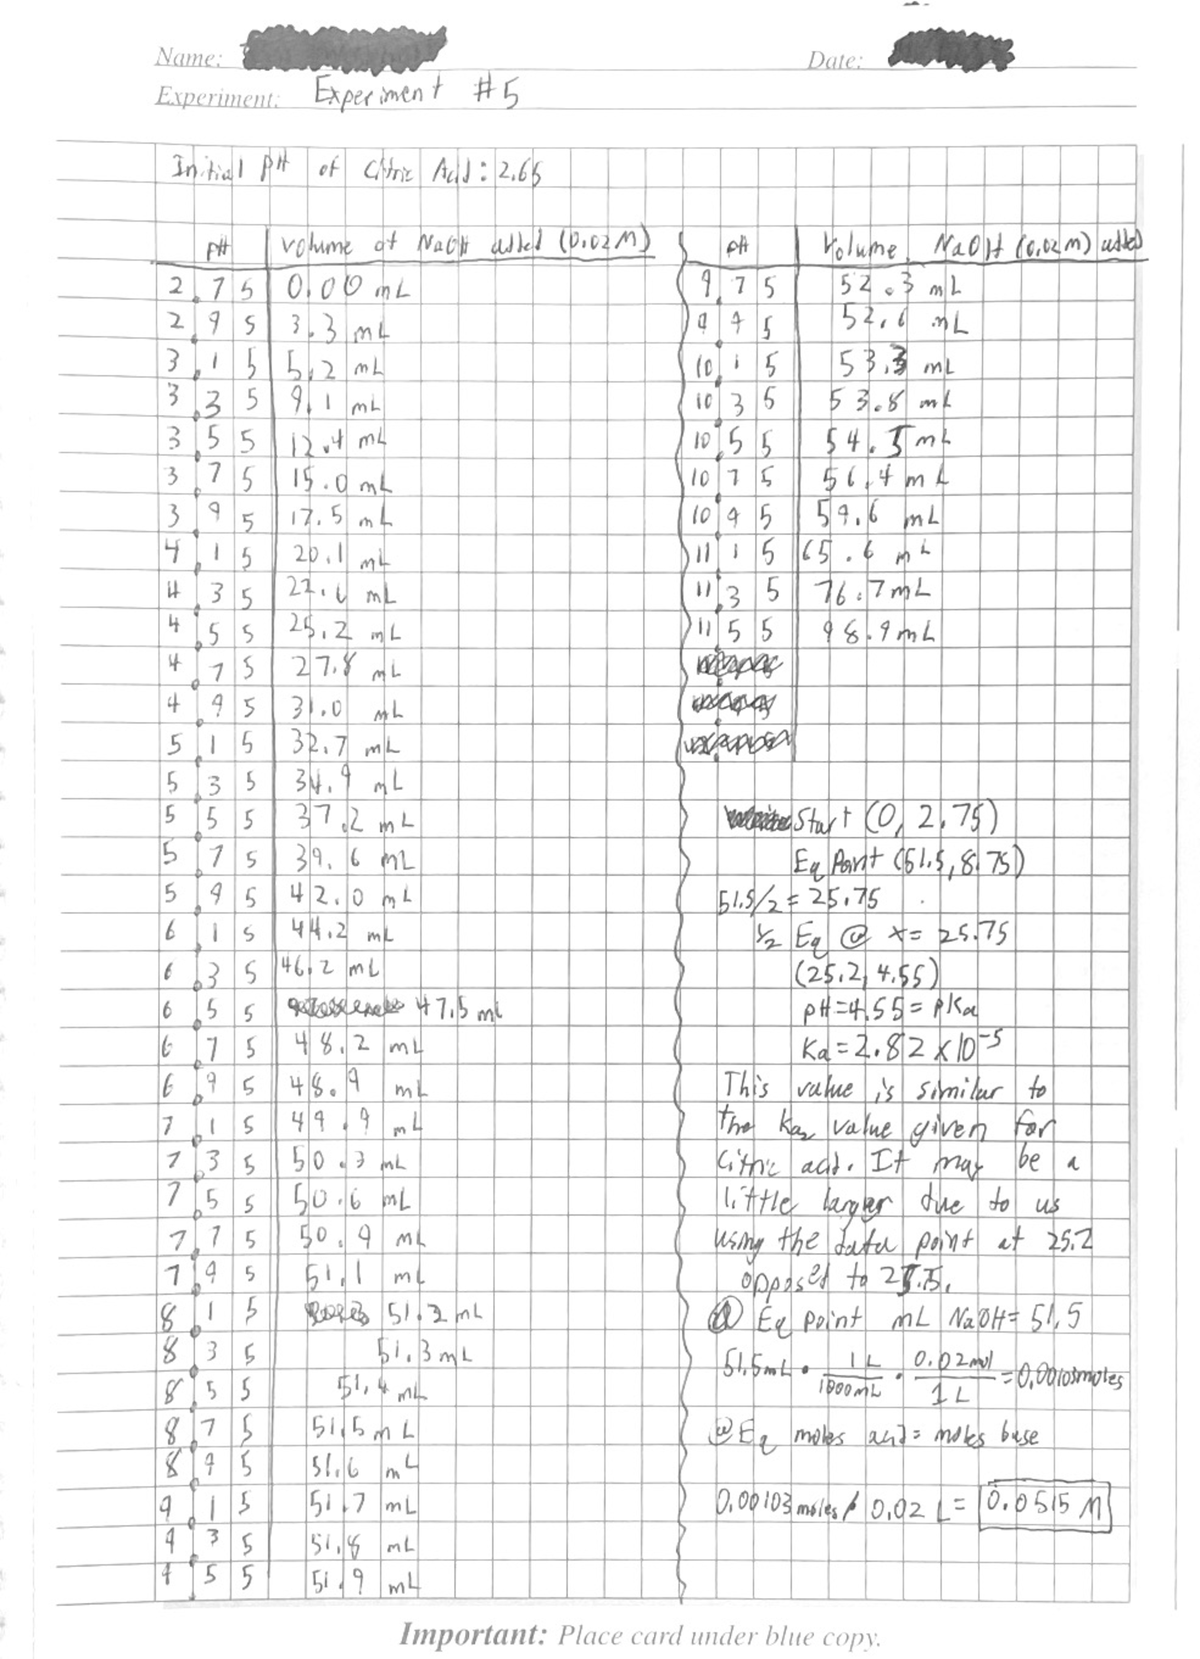 Name:
Date:
Experiment: Experiment #5
Initial pH of Citric Acid: 2.65
pH | Volume of NaOH added (0.02M)
2.75 | 0.00 mL
2.95 | 3.3 mL
3.15 | 5.2 mL
3.35 | 9.1 mL
3.55 | 12.4 mL
3.75 | 15.0 mL
3.95 | 17.5 mL
4.15 | 20.1 mL
4.35 | 22.6 mL
4.55 | 25.2 mL
4.75 | 27.8 mL
4.95 | 31.0 mL
5.15 | 32.7 mL
5.35 | 34.9 mL
5.55 | 37.2 mL
5.75 | 39.6 mL
5.95 | 42.0 mL
6.15 | 44.2 mL
6.35 | 46.2 mL
6.55 | 47.5 mL
6.75 | 48.2 mL
6.95 | 48.9 mL
7.15 | 49.9 mL
7.35 | 50.3 mL
7.55 | 50.6 mL
7.75 | 50.9 mL
7.95 | 51.1 mL
8.15 | 51.2 mL
8.35 | 51.3 mL
8.55 | 51.4 mL
8.75 | 51.5 mL
8.95 | 51.6 mL
9.15 | 51.7 mL
9.35 | 51.8 mL
9.55 | 51.9 mL
pH | Volume NaOH (0.02M) added
9.75 | 52.3 mL
9.95 | 52.6 mL
10.15 | 53.3 mL
10.35 | 53.8 mL
10.55 | 54.5 mL
10.75 | 56.4 mL
10.95 | 59.6 mL
11.15 | 65.6 mL
11.35 | 76.7 mL
11.55 | 98.9 mL
Start (0, 2.75)
Eq Point (51.5, 8.75)
51.5/2 = 25.75
1/2 Eq @ x = 25.75
(25.2, 4.55)
pH=4.55=pKa
Ka=2.82 x 10⁻⁵
This value is similar to
the Ka₂ value given for
Citric acid. It may be a
little larger due to us
using the data point at 25.2
opposed to 25.5.
@ Eq point mL NaOH = 51.5
51.5mL · 1 L/1000mL · 0.02mol/1 L = 0.00103moles
@ Eq moles acid = moles base
0.00103 moles / 0.02 L = 0.0515 M
Important: Place card under blue copy.